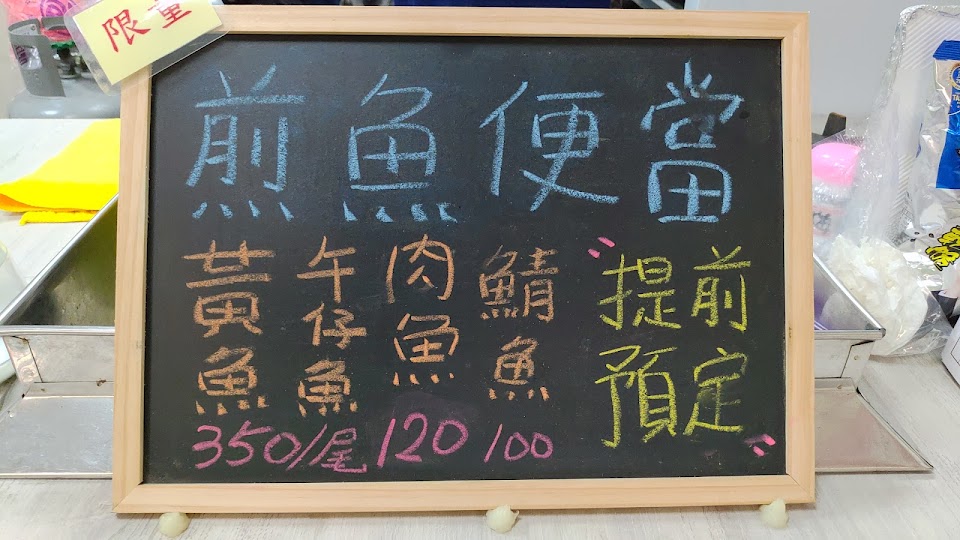 限量
煎魚便當
黃魚
午仔魚
肉魚
鯖魚
350/尾
120
100
"提前
預定"